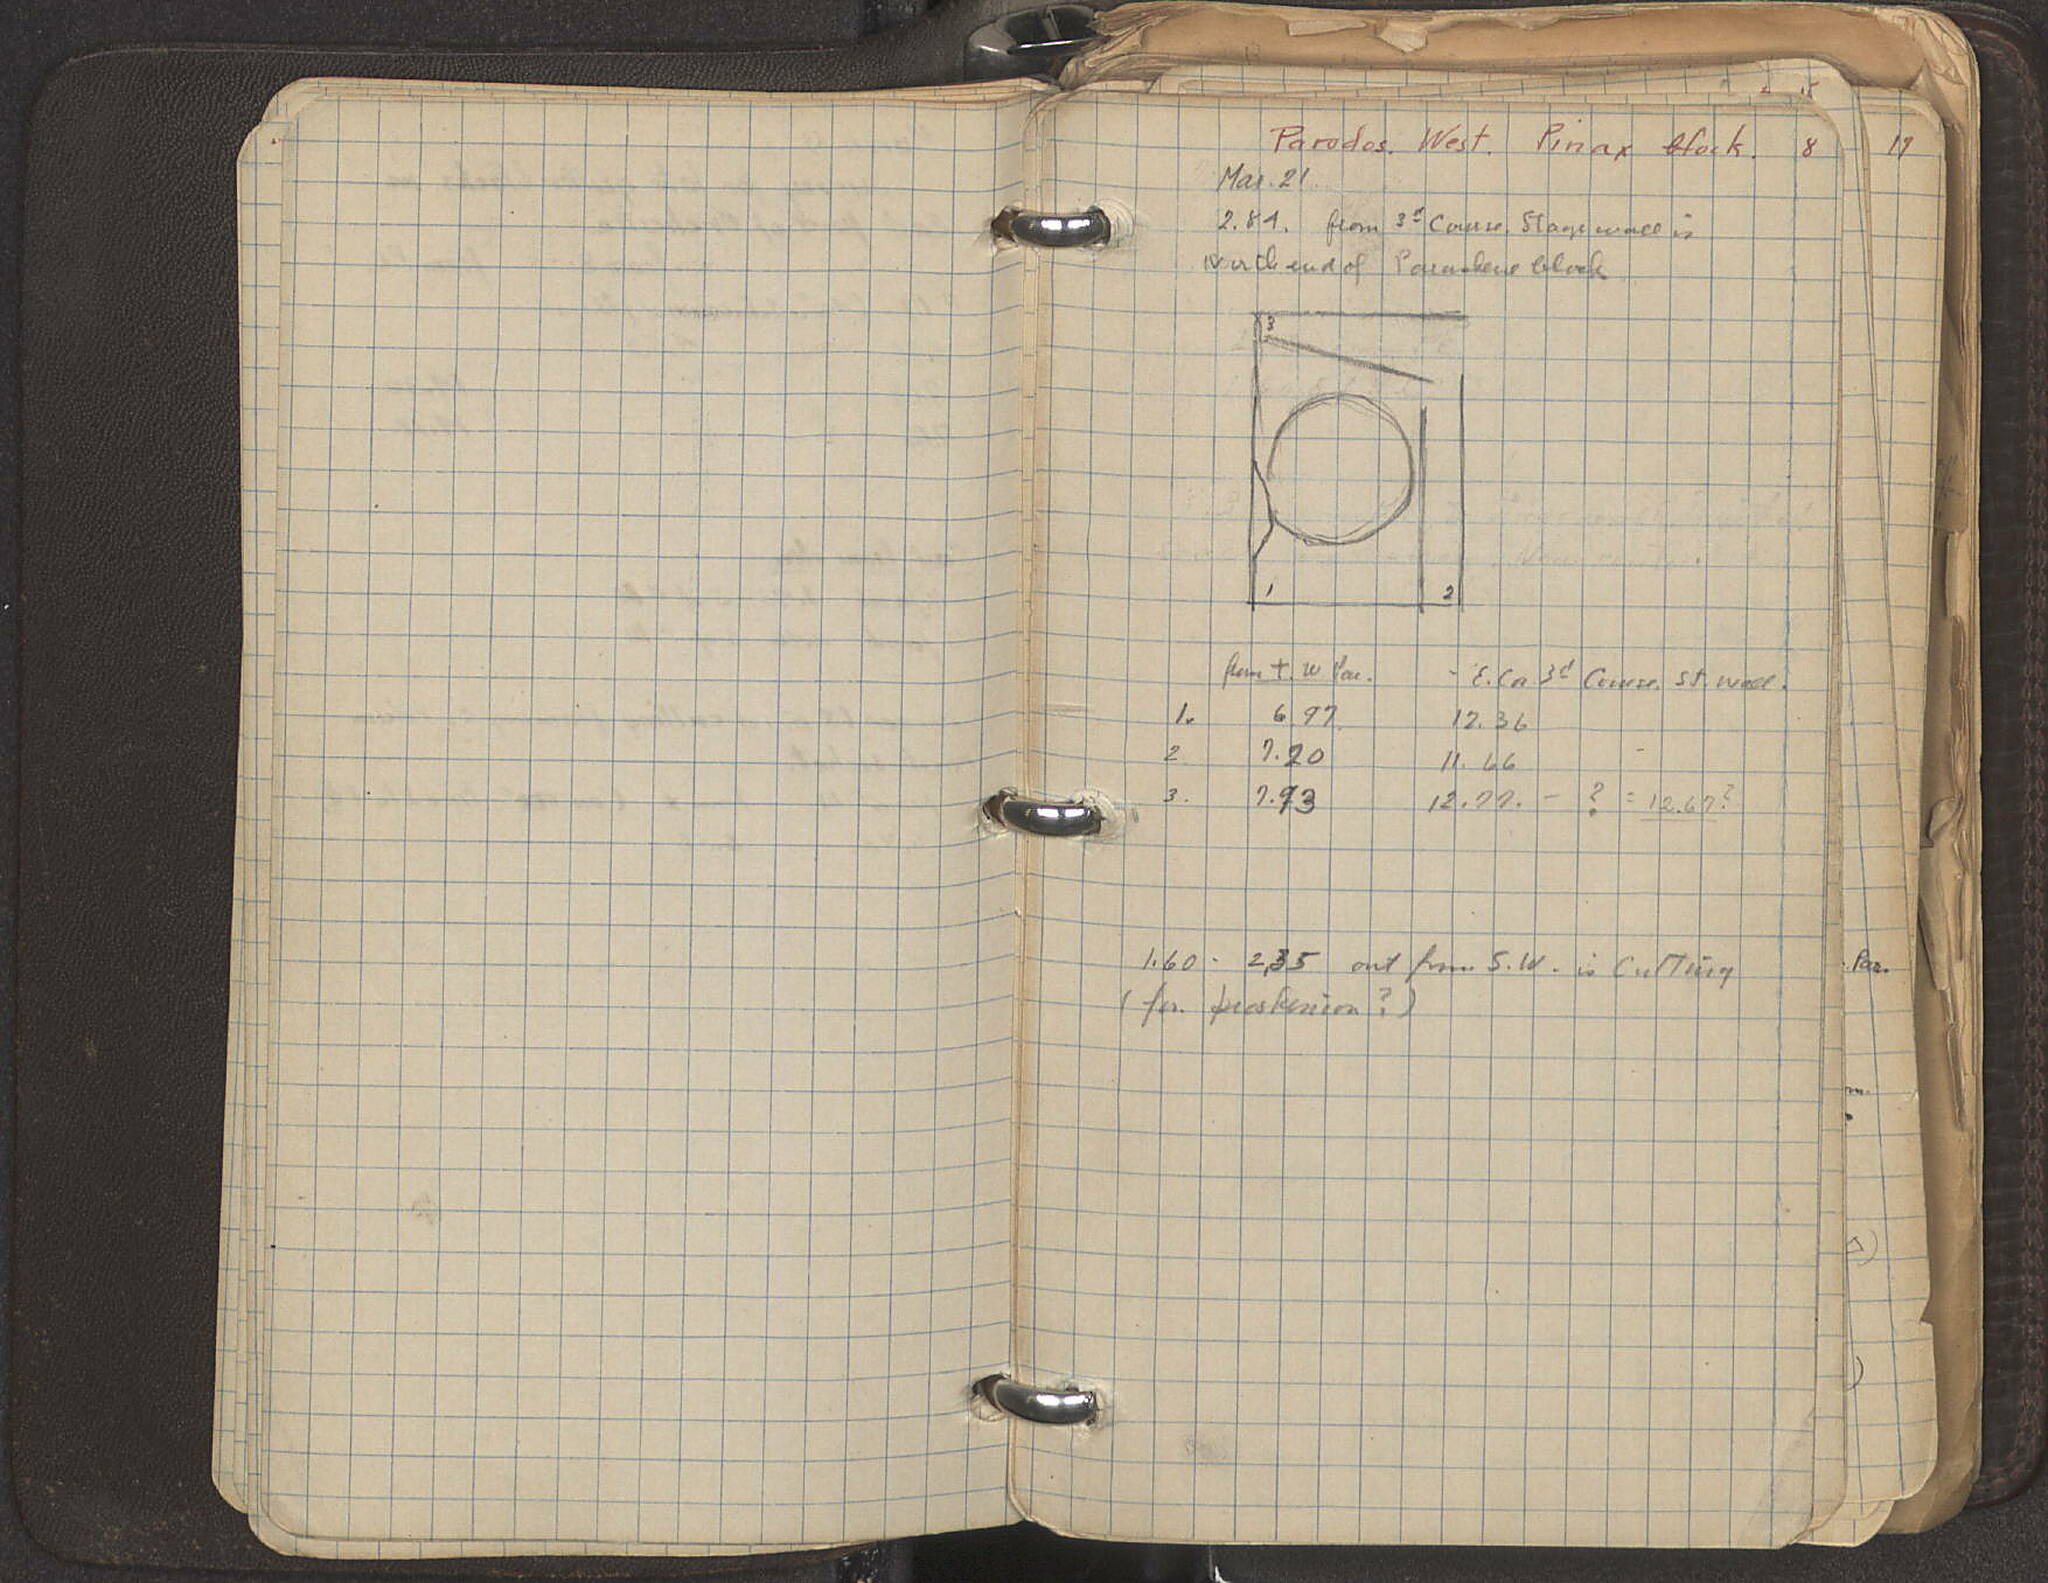 Parodos. West. Pinax block. 8
17
Mar. 21
2.84. from 3d Course. Stage wall is
North end of Paraskene block
3
1 2
from + . W Par. - E. Cor 3d Course. St. wall.
1. 6.97 12.36
2 7.20 11.66
3. 7.93 12.77. - ? = 12.67?
1.60 - 2.35 out from S.W. is Cutting
(for proskenion?)
Par.